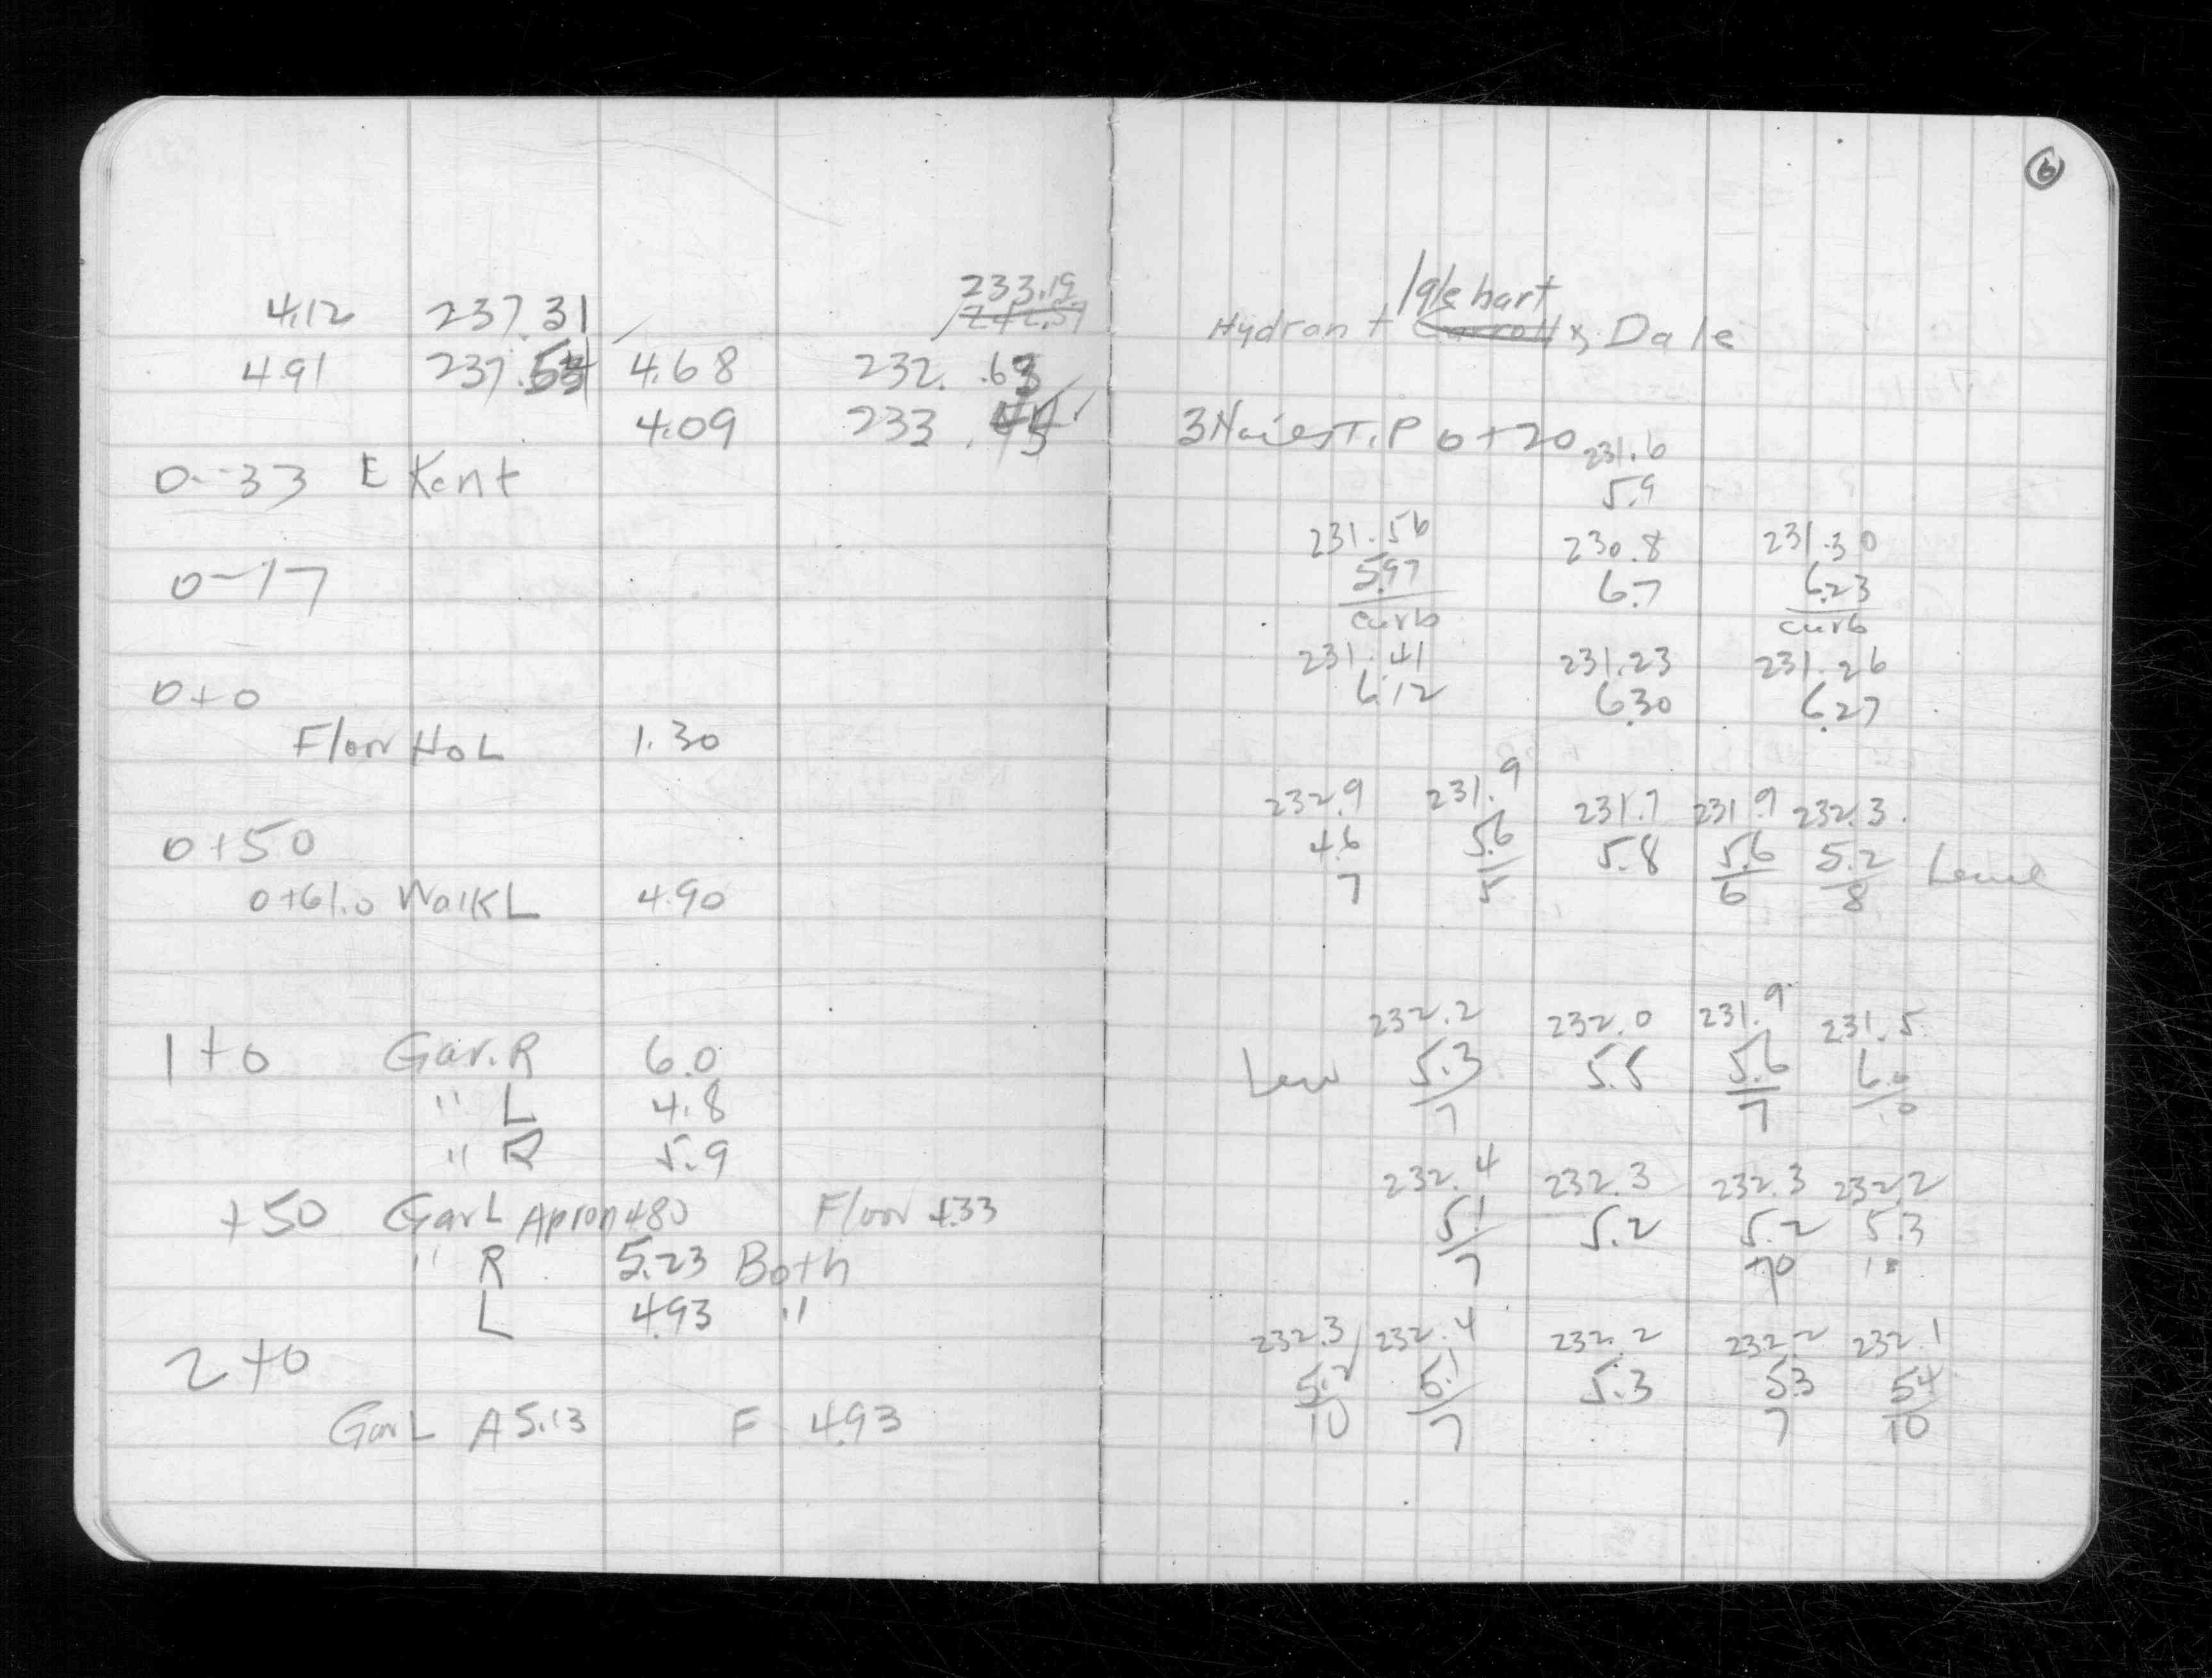 233.19
4.12 237.31 242.57
491 237.54 4.68 232.63
4.09 233.45
0-33 E Kent
0-17
0+0
Floor Ho L 1.30
0+50
0+61.0 Walk L 4.90
1+0 Gar. R 6.0
" L 4.8
" R 5.9
+50 Gar L Apron 480 Floor 4.33
" R 5.23 Both
L 4.93 "
2+0
Gar L A 5.13 F 4.93
6
Iglehart
Hydrant Carroll & Dale
3 Nails T.P 0+20
231.6
5.9
231.56 230.8 231.30
5.97 6.7 6.23
curb curb
231.41 231.23 231.26
6.12 6.30 6.27
232.9 231.9 231.7 231.9 232.3
4.6 5.6 5.8 5.6 5.2
7 5 6 8
232.2 232.0 231.9 231.5
5.3 5.5 5.6 6.0
7 7 10
232.4 232.3 232.3 232.2
5.1 5.2 5.2 5.3
7 10
232.3 232.4 232.2 232.2 232.1
5.2 5.1 5.3 5.3 54
10 7 7 10